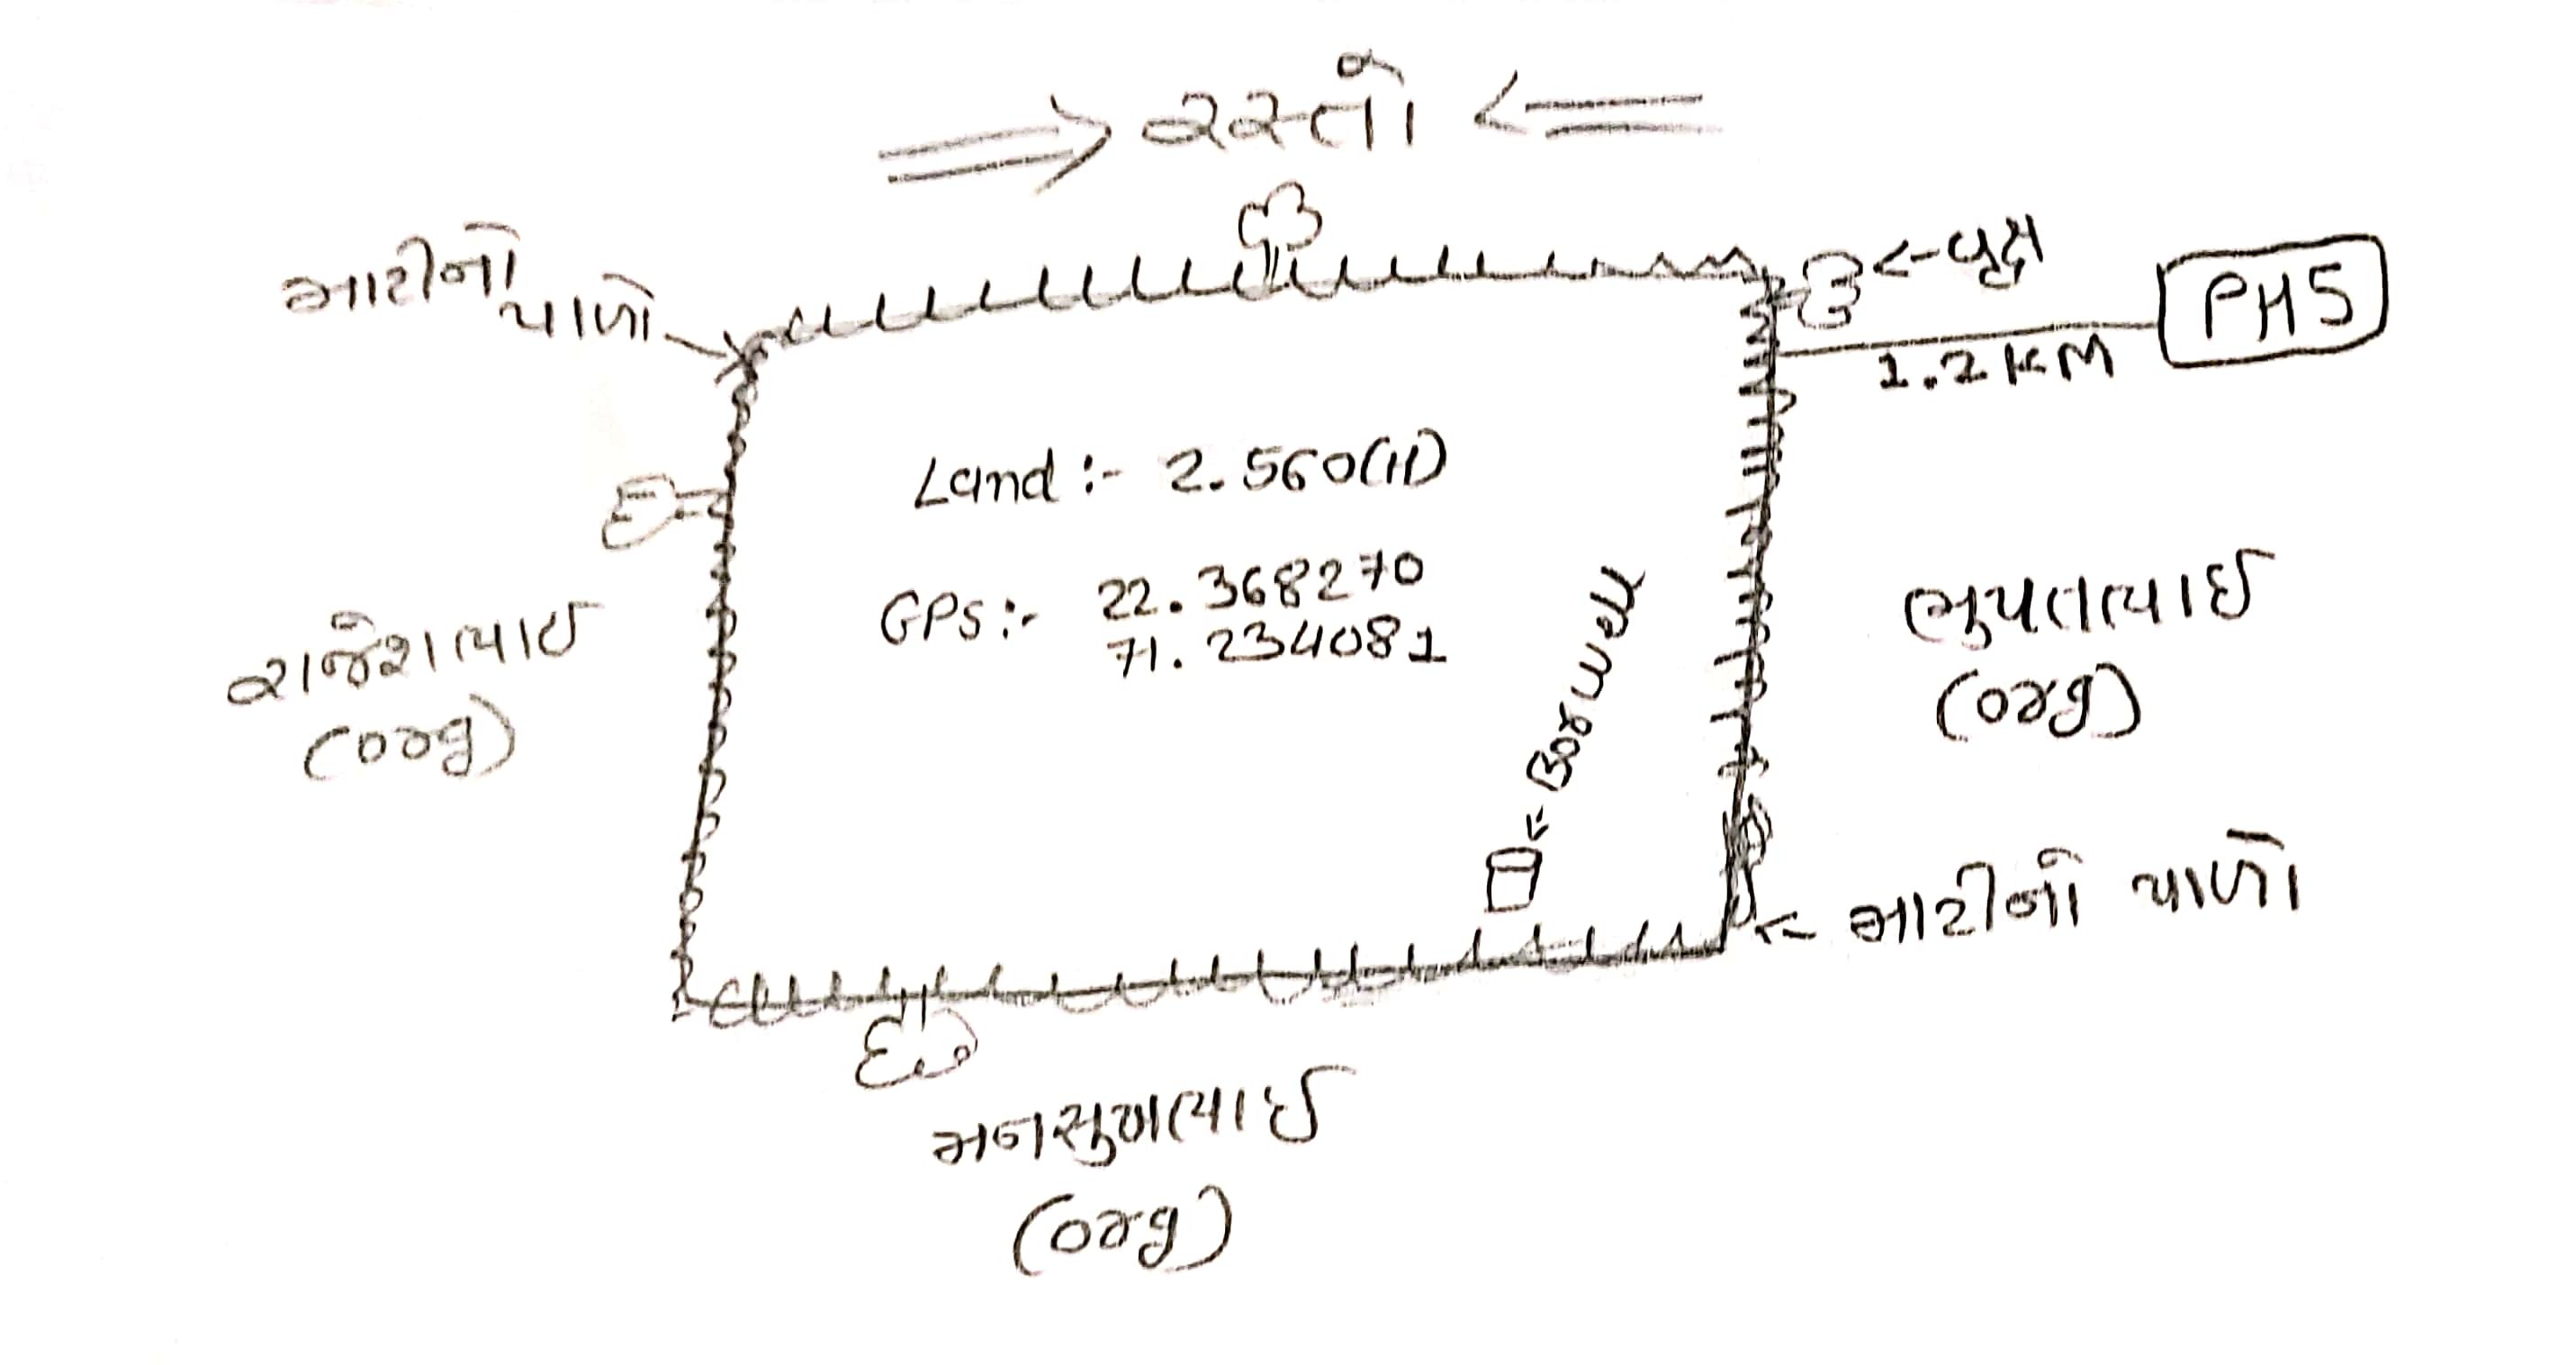 રસ્તો
માટીનો
પાળો
વૃક્ષ
PHS
1.2 KM
Land :- 2.560(H)
GPS:- 22.368270
71.234081
બોરવેલ
રાજેશભાઈ
(org)
ભુપતભાઈ
(org)
માટીનો પાળો
મનસુખભાઈ
(org)